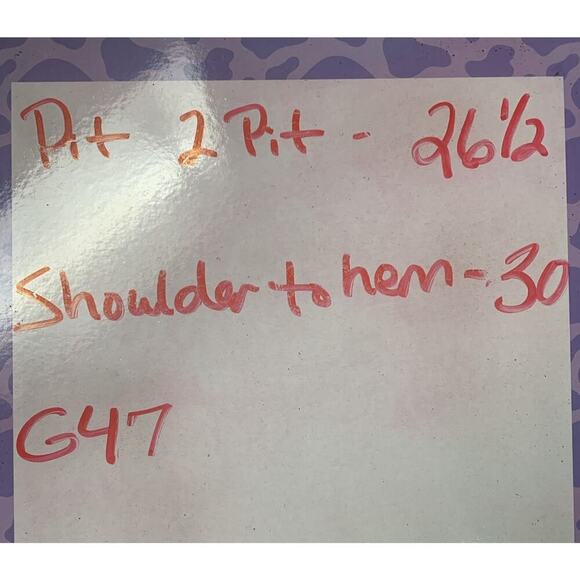 Pit 2 Pit - 26 1/2
Shoulder to hem - 30
G47